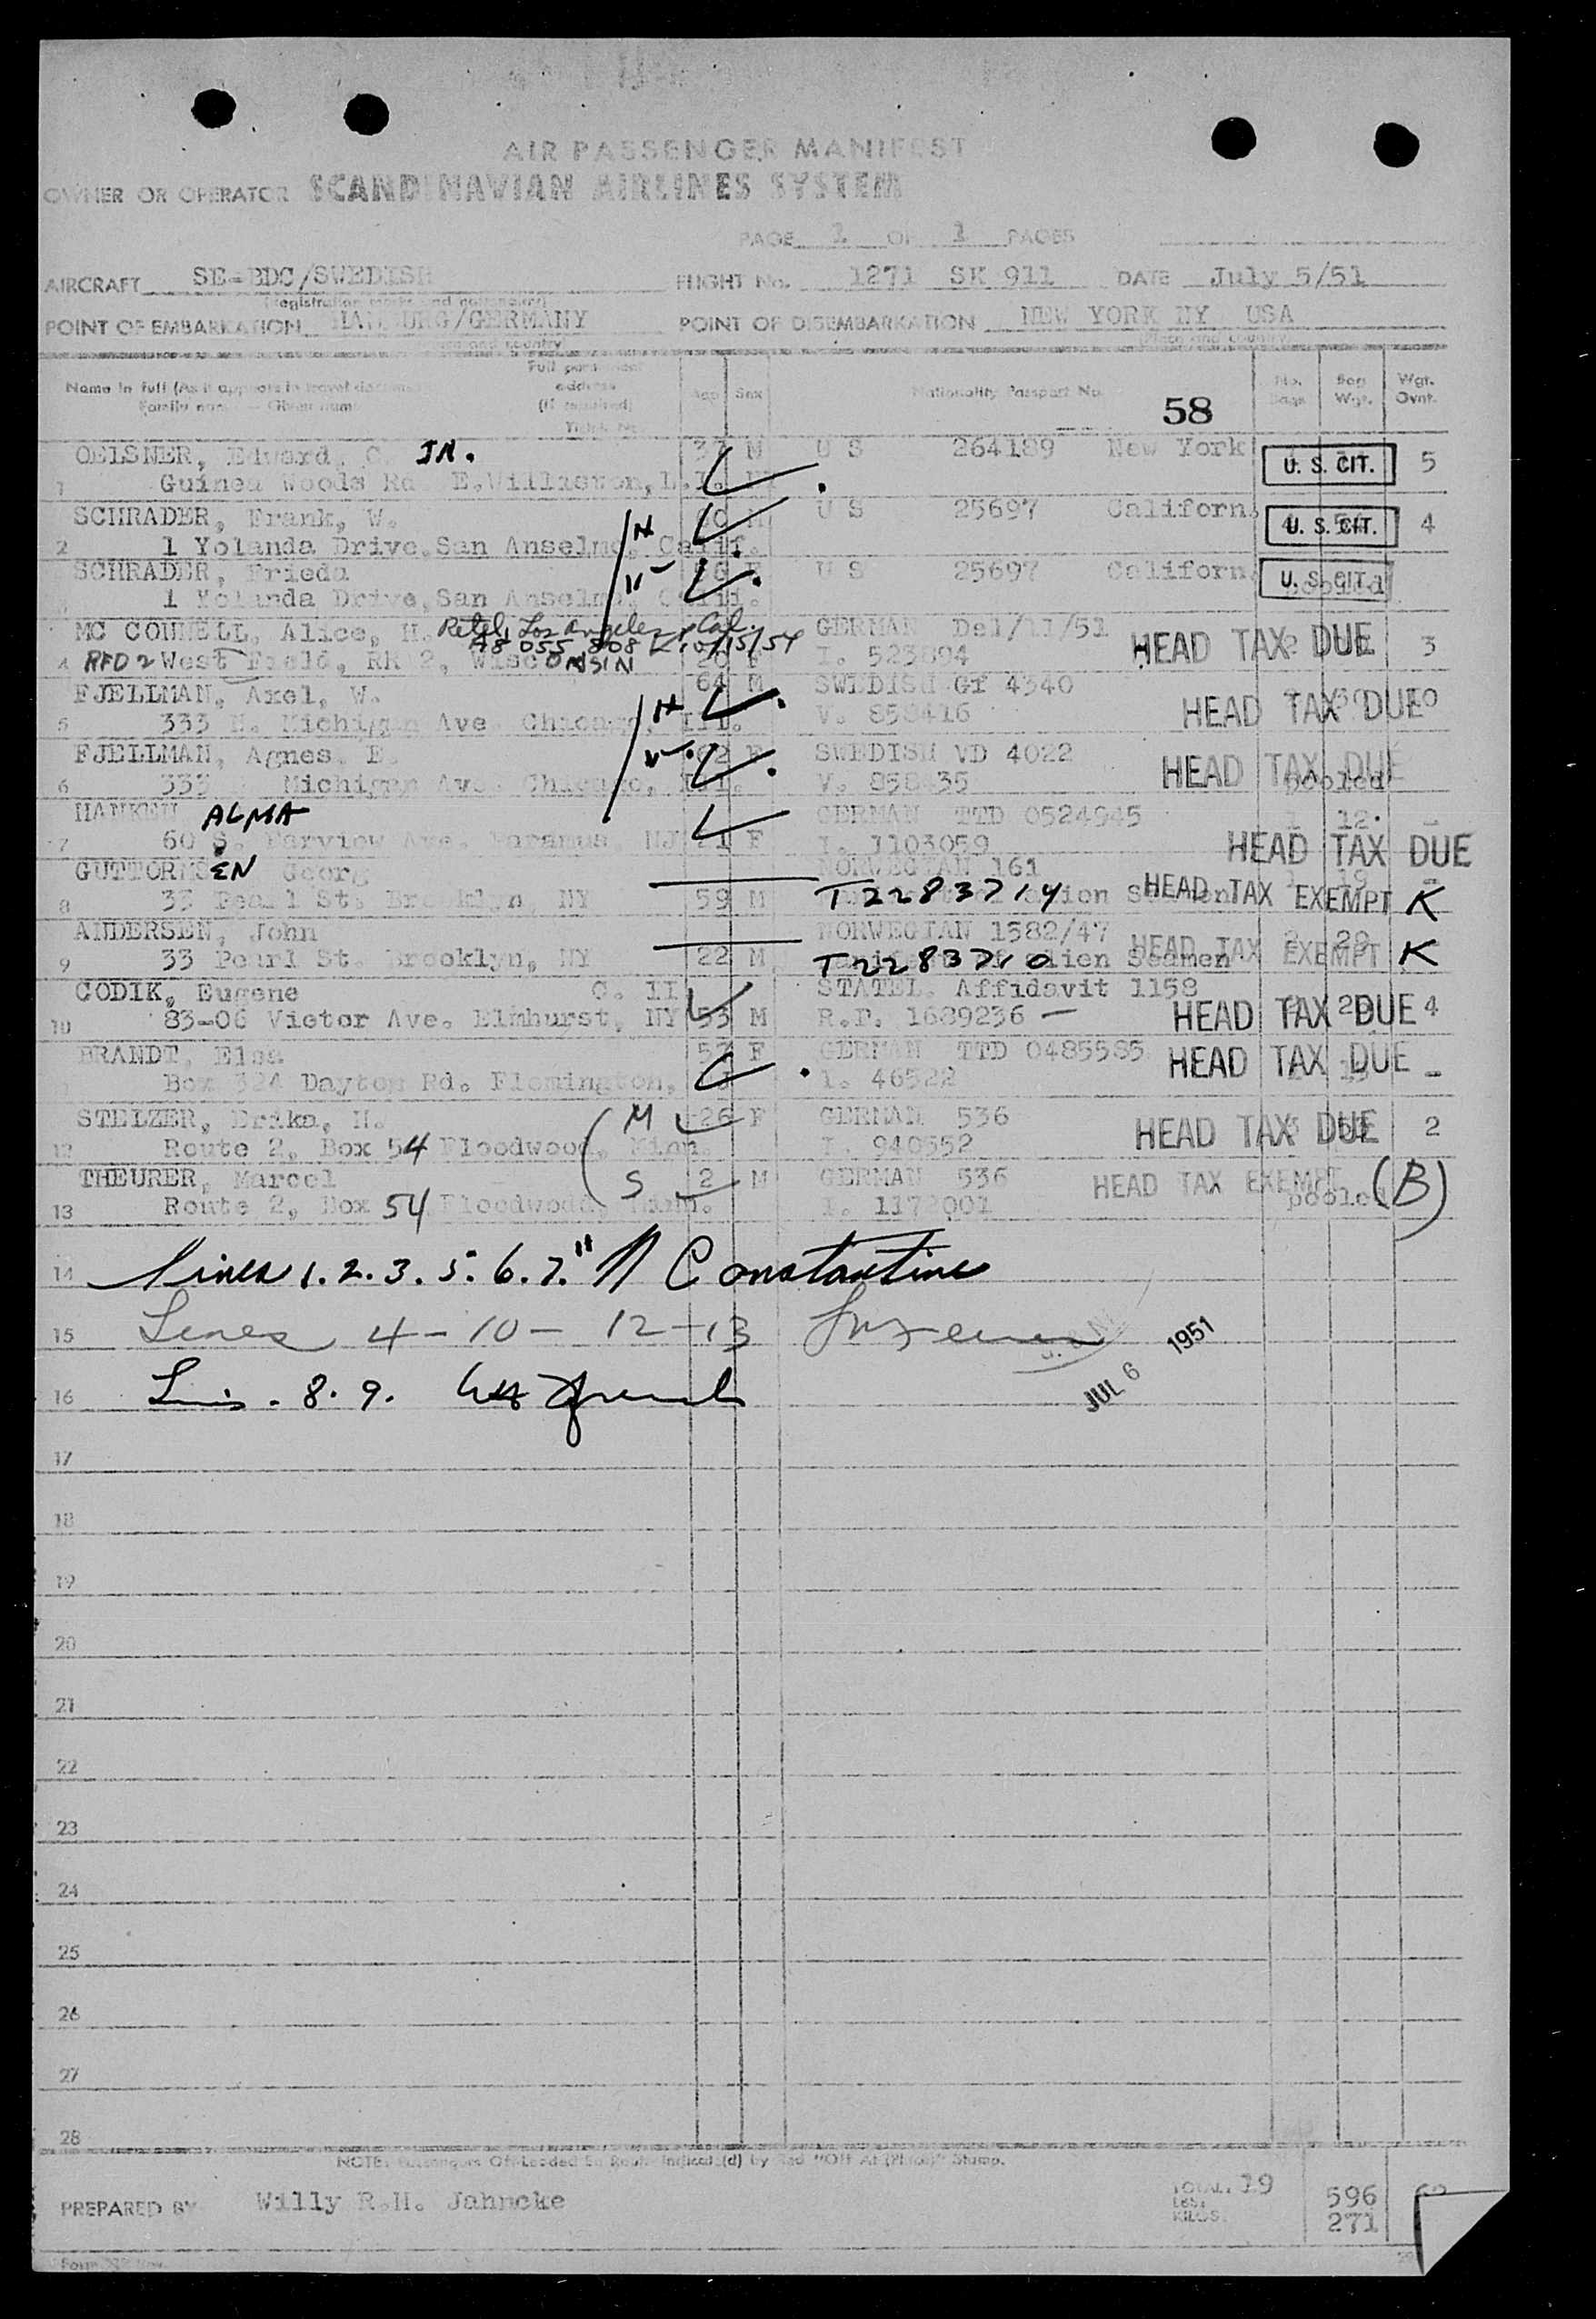 AIR PASSENGER MANIFEST
OWNER OR OPERATOR SCANDINAVIAN AIRLINES SYSTEM
PAGE 1 OF 1 PAGES
AIRCRAFT SE-BDC/SWEDISH FLIGHT No. 1271 SK 911 DATE July 5/51
(Registration marks and nationality)
POINT OF EMBARKATION HAMBURG/GERMANY POINT OF DISEMBARKATION NEW YORK NY USA
(Place and country) (Place and country)
Name in full (As it appears in travel document) Full permanent address (if required) Age Sex Nationality Passport No. 58 No. Bags Bag Wgt. Wgt. Ovnt.
Family name — Given name
OELSNER, Edward, C. JR. 37 M U S 264189 New York U. S. CIT. 5
1 Guinea Woods Rd E.Williston, L.I.
SCHRADER, Frank, W. 60 M U S 25697 Californ. U. S. CIT. 4
2 1 Yolanda Drive, San Anselmo, Calif.
SCHRADER, Frieda F U S 25697 Californ. U. S. CIT. pooled
1 Yolanda Drive, San Anselmo, Calif.
MC CONNELL, Alice, H. Los Angeles, Cal. GERMAN Del/11/51 HEAD TAX DUE 3
A8 055 808 10/15/54
4 RFD 2 West Field, RR 2, WiscONSIN 20 F I. 523894
FJELLMAN, Axel, W. 64 M SWEDISH GI 4340 HEAD TAX DUE
5 333 N. Michigan Ave Chicago, Ill. V. 858416
FJELLMAN, Agnes E. 62 F SWEDISH VD 4022 HEAD TAX DUE
6 333 Michigan Ave. Chicago, Ill. V. 858435 pooled
HANKEN ALMA GERMAN TTD 0524945 1 12.
7 60 S. Farview Ave. Paramus, NJ 71 F I. 1103059 HEAD TAX DUE
GUTTORMSEN Georg NORWEGIAN 161 HEAD TAX EXEMPT K
8 33 Pearl St. Brooklyn, NY 59 M T2283714 Seamen
ANDERSEN, John NORWEGIAN 1582/47 HEAD TAX EXEMPT K
9 33 Pearl St. Brooklyn, NY 22 M T2283710 alien Seamen
GODIK, Eugene G. II STATEL. Affidavit 1158
10 83-06 Victor Ave. Elmhurst, NY 53 M R.P. 1689236 — HEAD TAX DUE 4
BRANDT, Elsa 52 F GERMAN TTD 0485585 HEAD TAX DUE -
Box 324 Dayton Rd. Flemington, NJ I. 46522
STELZER, Erika, H. M 26 F GERMAN 536 HEAD TAX DUE 2
12 Route 2, Box 54 Floodwood, Minn. I. 940552
THEURER, Marcel S 2 M GERMAN 536 HEAD TAX EXEMPT (B)
13 Route 2, Box 54 Floodwood, Minn. I. 1172001 pooled
14 Lines 1. 2. 3. 5. 6. 7. 11 Constantine
15 Lines 4 - 10 - 12 - 13
JUL 6 1951
16 Lines. 8. 9.
17
18
19
20
21
22
23
24
25
26
27
28
NOTE: Passengers Off-Loaded En Route Indicate(d) by Red "Off At (Place)" Stamp.
PREPARED BY Willy R.H. Jahncke
TOTAL 19
LBS. 596
KILOS. 271